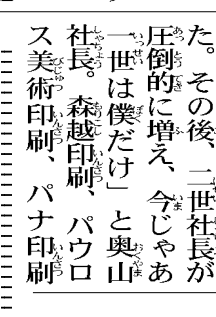 た。その後、二世社長が
圧倒的に増え、今じゃあ
一世は僕だけ」と奥山
社長。森越印刷、パウロ
ス美術印刷、パナ印刷